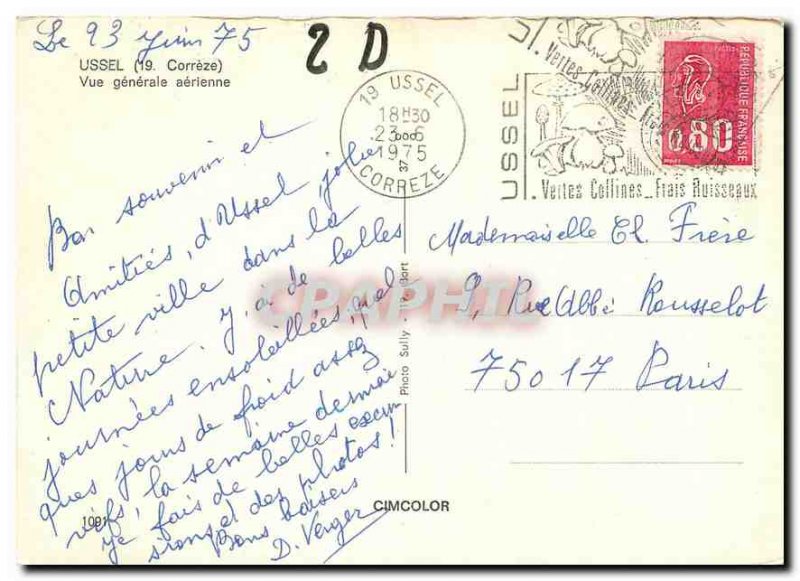 Le 23 juin 75
2 D
USSEL (19. Corrèze)
Vue générale aérienne
19 USSEL
18H30
23-6
1975
37
CORREZE
USSEL
Vertes Collines_Frais Ruisseaux
USSEL
Vertes Collines
REPUBLIQUE FRANÇAISE
0,80
Bon souvenir et
Amitiés, d'Ussel, jolie
petite ville dans la
Nature. Y, a de belles
journées ensoleillées, quel
ques jours de froid assez
vifs, la semaine dernière
Je fais de belles excur
sions et des photos!
Bons baisers
D. Verger
Mademoiselle El. Frère
9, Rue Abbé Rousselot
75017 Paris
Photo Sully
Bort
CIMCOLOR
1091
CPAPHIL